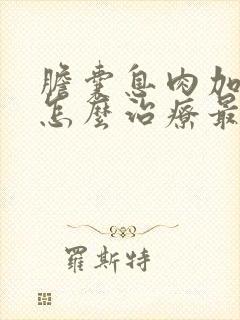 膽囊息肉加
怎麼治療最
羅斯特